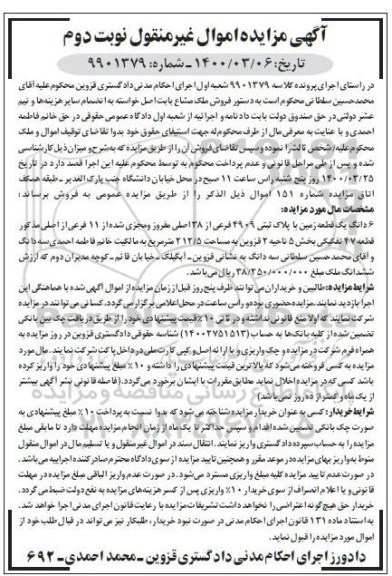 آگهی مزایده اموال غیرمنقول نوبت دوم
تاریخ: ۱۴۰۰/۰۳/۰۶ ـ شماره: ۹۹۰۱۳۷۹
در راستای اجرای پرونده کلاسه ۹۹۰۱۳۷۹ شعبه اول اجرای احکام مدنی دادگستری قزوین محکوم علیه آقای
محمدحسین سلطانی محکوم است به دستور فروش ملک مشاع بابت اصل خواسته به انضمام سایر هزینه ها و نیم
عشر دولتی در حق صندوق دولت بابت دادنامه و اجرائیه از شعبه اول دادگاه عمومی حقوقی در حق خانم فاطمه
احمدی و با عنایت به معرفی مال از طرف محکوم له جهت استیفای حقوق خود بدوا تقاضای توقیف اموال و ملک
محکوم علیه/ شخص ثالث را نموده و سپس تقاضای فروش آن را از طریق مزایده که به شرح و میزان ذیل کارشناسی
شده و پس از طی مراحل قانونی و عدم پرداخت محکوم به توسط محکوم علیه این اجرا قصد دارد در تاریخ
۱۴۰۰/۰۳/۲۵ روز پنج شنبه راس ساعت ۱۱ صبح در محل خیابان دانشگاه جنب پارک الغدیر ـ طبقه همکف
اتاق مزایده شماره ۱۵۱ اموال ذیل الذکر را از طریق مزایده عمومی به فروش برساند:
مشخصات مال مورد مزایده:
۶ دانگ یک قطعه زمین با پلاک ثبتی ۴۹۰۹ فرعی از ۳۸ اصلی مفروز و مجزی شده از ۱۱ فرعی از اصلی مذکور
قطعه ۴۷ تفکیکی بخش ۵ ناحیه ۲ قزوین به مساحت ۲۱۲/۵ مترمربع به مالکیت خانم فاطمه احمدی سه دانگ
و آقای محمدحسین سلطانی سه دانگ به نشانی قزوین ـ آبگیلک ـ خیابان قائم ـ کوچه مدیران دوم که ارزش
ششدانگ ملک مبلغ ۳۸/۲۵۰/۰۰۰/۰۰۰ ریال می باشد.
شرایط مزایده: طالبین و خریداران می توانند ظرف پنج روز قبل از زمان مزایده از اموال آگهی شده با هماهنگی این
اجرا بازدید نمایند. مزایده حضوری بوده و رأس ساعت در محل اعلامی برگزار می گردد. کسانی می توانند در مزایده
شرکت نمایند که اولا منع قانونی نداشته و در ثانی ۱۰٪ قیمت پیشنهادی خود را از طریق دریافت چک بین بانکی
تضمین شده از کلیه بانک ها به حساب (۱۴۰۰۲۷۵۱۵۱۳) شناسه حقوقی دادگستری قزوین در روز مزایده به
همراه فرم شرکت در مزایده و چک واریزی و با ارائه اصل و کپی کارت ملی در داخل پاکت شرکت نمایند. مال مورد
مزایده به کسی فروخته می شود که بالاترین قیمت پیشنهادی را داشته و ۱۰٪ مبلغ پیشنهادی خود را واریز کرده
باشد کسی که در مزایده اخلال نماید مطابق مقررات با ایشان برخورد می گردد. (فاصله قانونی نشر آگهی بیشتر
از یک ماه و کمتر از ده روز نمی باشد)
شرایط خریدار: کسی به عنوان خریدار مزایده شناخته می شود که بدوا نسبت به پرداخت ۱۰٪ مبلغ پیشنهادی به
صورت چک بانکی تضمین شده اقدام و سپس حداکثر تا یک ماه از زمان انجام مزایده مهلت دارد تا مابقی مبلغ
مزایده را به حساب سپرده دادگستری واریز نمایند. انتقال سند در اموال غیرمنقول و یا تسلیم مال در اموال منقول
منوط به واریز بهای مزایده در موعد مقرر و همچنین تایید مزایده از سوی دادگاه محترم صادرکننده اجراییه می باشد.
در صورت عدم تایید مزایده کلیه مبلغ واریزی مسترد می شود. در صورت عدم واریز الباقی مبلغ مزایده در مهلت
قانونی و یا اعلام انصراف از سوی خریدار ۱۰٪ واریزی پس از کسر هزینه های مزایده به نفع دولت ضبط می گردد.
خریدار حق هیچ گونه اعتراضی را نخواهد داشت تشریفات مزایده با رعایت قانون اجرای مدنی اجرا خواهد شد.
به استناد ماده ۱۳۱ قانون اجرای احکام مدنی در صورت نبود خریدار، طلبکار نیز می تواند در قبال طلب خود از
اموال مورد مزایده را قبول نماید.
دادورز اجرای احکام مدنی دادگستری قزوین ـ محمد احمدی ـ ۶۹۲